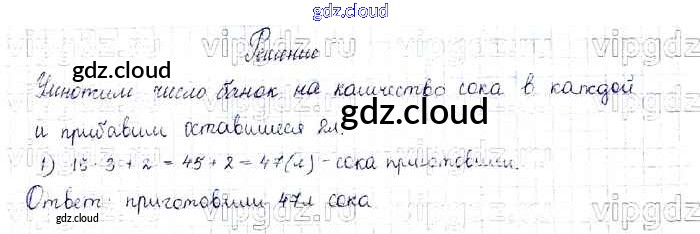 gdz.cloud
Решение
gdz.cloud
Умножим число банок на количество сока в каждой
gdz.cloud
и прибавим оставшиеся 2л.
1) 15 · 3 + 2 = 45 + 2 = 47 (л) - сока приготовили.
Ответ: приготовили 47л сока
gdz.cloud
gdz.cloud